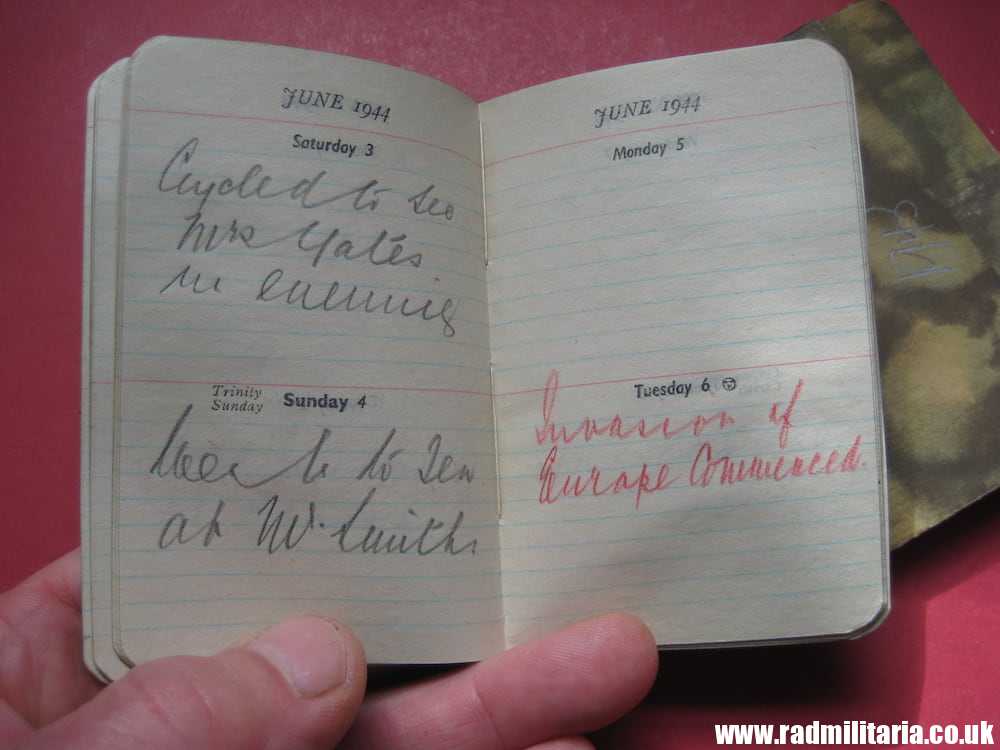 JUNE 1944
Saturday 3
Cycled to see
Mrs Yates
in evening
Trinity
Sunday
Sunday 4
Went to Tea
at W. Smiths
JUNE 1944
Monday 5
Tuesday 6
Invasion of
Europe Commenced.
www.radmilitaria.co.uk